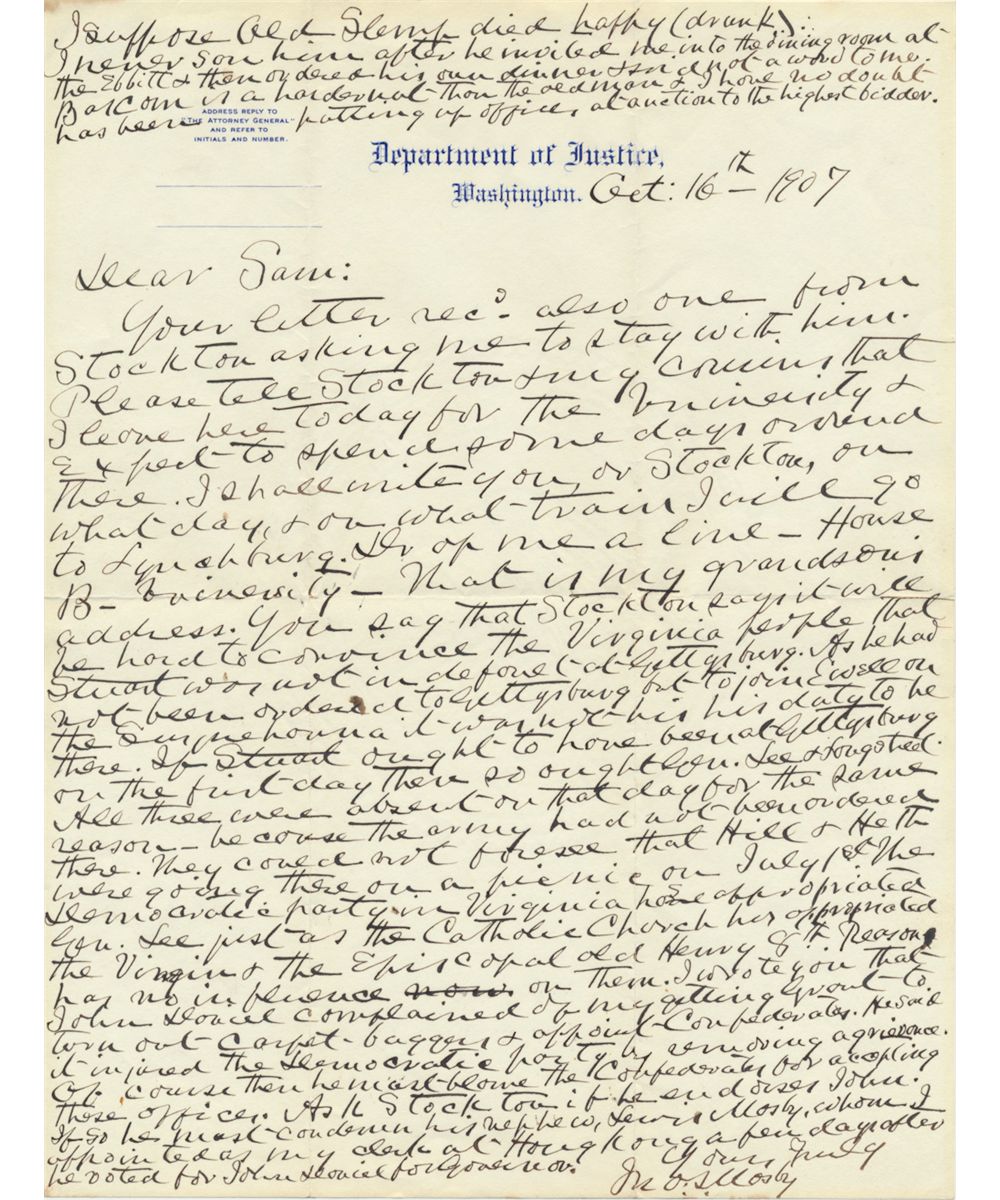 I suppose Old Slemp died happy (drunk).
I never son him after he invited me into the dining room at
the Ebbitt & then ordered his own dinner & said not a word to me.
Bascom is a harder nut than the old man & I have no doubt
has been putting up offices at auction to the highest bidder.
ADDRESS REPLY TO
"THE ATTORNEY GENERAL"
AND REFER TO
INITIALS AND NUMBER.
Department of Justice,
Washington. Oct: 16th – 1907
Dear Sam:
Your letter recd. also one from
Stockton asking me to stay with him.
Please tell Stockton & my cousins that
I leave here today for the University &
Expect to spend some days around
there. I shall write you, or Stockton, on
what day, & on what train I will go
to Lynchburg. Drop me a line – House
B – University – That is my grandson's
address. You say that Stockton says it will
be hard to convince the Virginia people that
Stuart was not in default at Gettysburg. As he had
not been ordered to Gettysburg but to join Ewell on
the Susquehanna it was not his his duty to be
there. If Stuart ought to have been at Gettysburg
on the first day then so ought Gen. Lee & Longstreet.
All three were absent on that day for the same
reason – because the army had not been ordered
there. They could not foresee that Hill & Heth
were going there on a picnic on July 1st. The
Democratic party in Virginia have appropriated
Gen. Lee just as the Catholic Church has appropriated
the Virgin & the Episcopal old Henry 8th. Reason
has no influence now on them. I wrote you that
John Daniel complained of my getting Grant to
turn out carpet-baggers & appoint Confederates. He said
it injured the Democratic party by removing a grievance.
Of course then he must blame the Confederates for accepting
these offices. Ask Stockton if he endorses John.
If so he must condemn his nephew, Lewis Mosby, whom I
appointed as my clerk at Hong Kong a few days after
he voted for John Daniel for Governor.
Yours Truly
Jno. S. Mosby